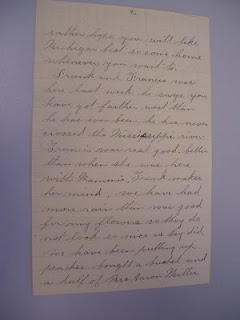 rather hope you will take
Michigan best so come home
whenever you want to.
Frank and Francis was
here last week he says you
have got farther west than
he has ever been he has never
crossed the Mississippi river
Francis was real good better
than when she was here
with Mammie, Frank makes
her mind, we have had
more rain than was good
for my flowers so they do
not look as nice as they did
We have been putting up
peaches bought a bushel and
a half of Mrs Aaron Miller